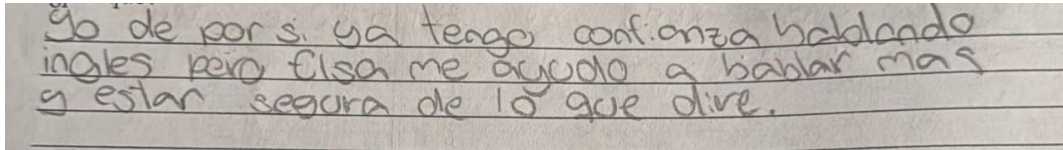 Yo de por si ya tengo confianza hablando
ingles pero Elsa me ayudo a hablar mas
y estar segura de lo que dire.